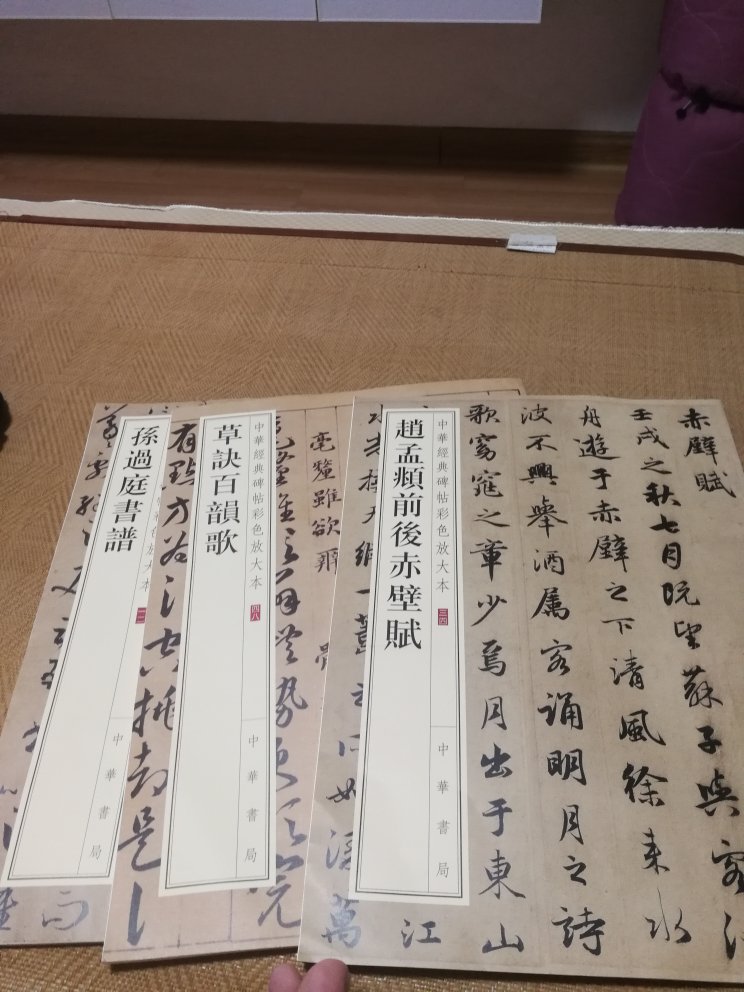 赤壁賦
壬戌之秋七月既望蘇子與客
舟遊于赤壁之下清風徐来水
波不興舉酒屬客誦明月之詩
歌窈窕之章少焉月出于東山
中華經典碑帖彩色放大本
三四
中華書局
趙孟頫前後赤壁賦
江
萬
毫釐雖欲辨
中華經典碑帖彩色放大本
四八
中華書局
草訣百韻歌
有點方為
挑却是
色放大本
中華書局
孫過庭書譜